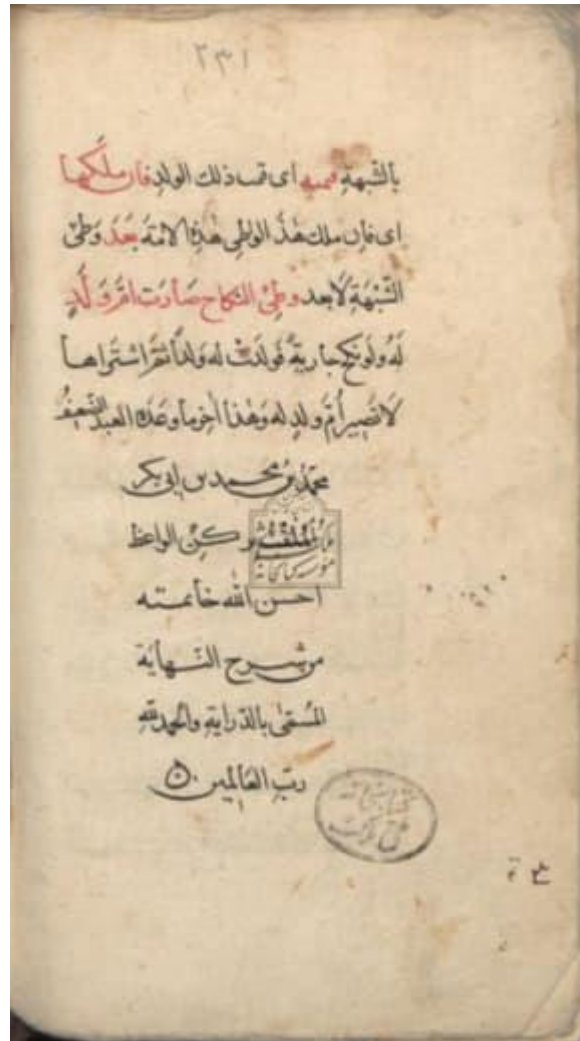 ٢٣١
بالشبهة قيمته اى قيمة ذلك الولد فان ملكها
اى فان ملك هذ الواطى هذه الامة بعد وطى
الشبهة لا بعد وطى النكاح صارت ام ولد
له ولو نكح جارية فولدت له ولدا ثم اشتراها
لا تصير أم ولد له وهذا آخر ما وعده العبد الضعيف
محمد بن محمد بن ابى بكر
الملقب بركن الواعظ
احسن الله خاتمته
من شرح النهاية
المسمى بالدراية والحمد لله
رب العالمين